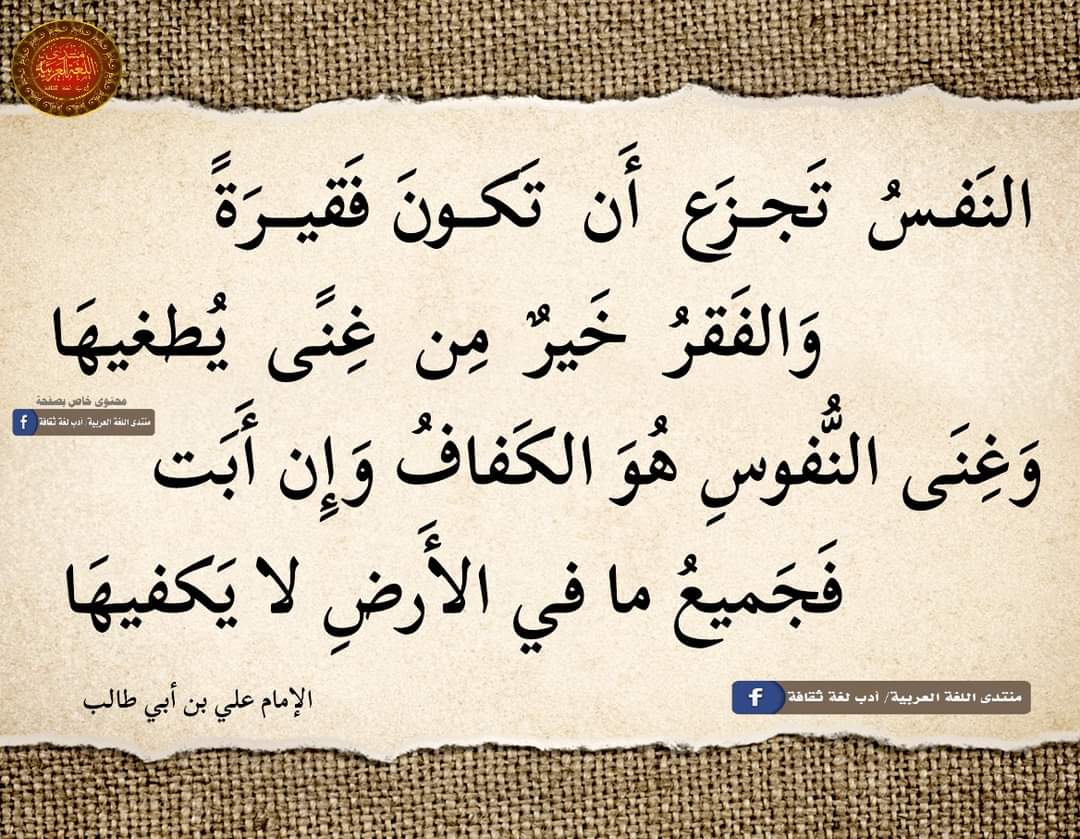 منتدى
اللغة العربية
النَفسُ تَجـزَع أَن تَكـونَ فَقيـرَةً
وَالفَقرُ خَيرٌ مِن غِنًـى يُطغيهَا
محتوى خاص بصفحة
منتدى اللغة العربية/ أدب لغة ثقافة
وَغِنَـى النُّفوسِ هُوَ الكَفافُ وَإِن أَبَت
فَجَميعُ ما في الأَرضِ لا يَكفيهَا
الإمام علي بن أبي طالب
منتدى اللغة العربية/ أدب لغة ثقافة